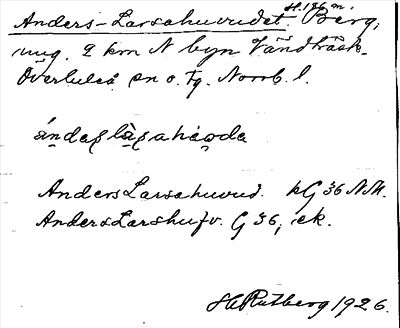 Anders-Larsahuvudet. H. 126 m. Berg,
ung. 2 km N byn Vändträsk.
Överluleå sn o. tg. Norrb. l.
Anders Larsahuvud. kG 36 N.M.
Anders Larshufv. G 36, ek.
H Rutberg 1926.